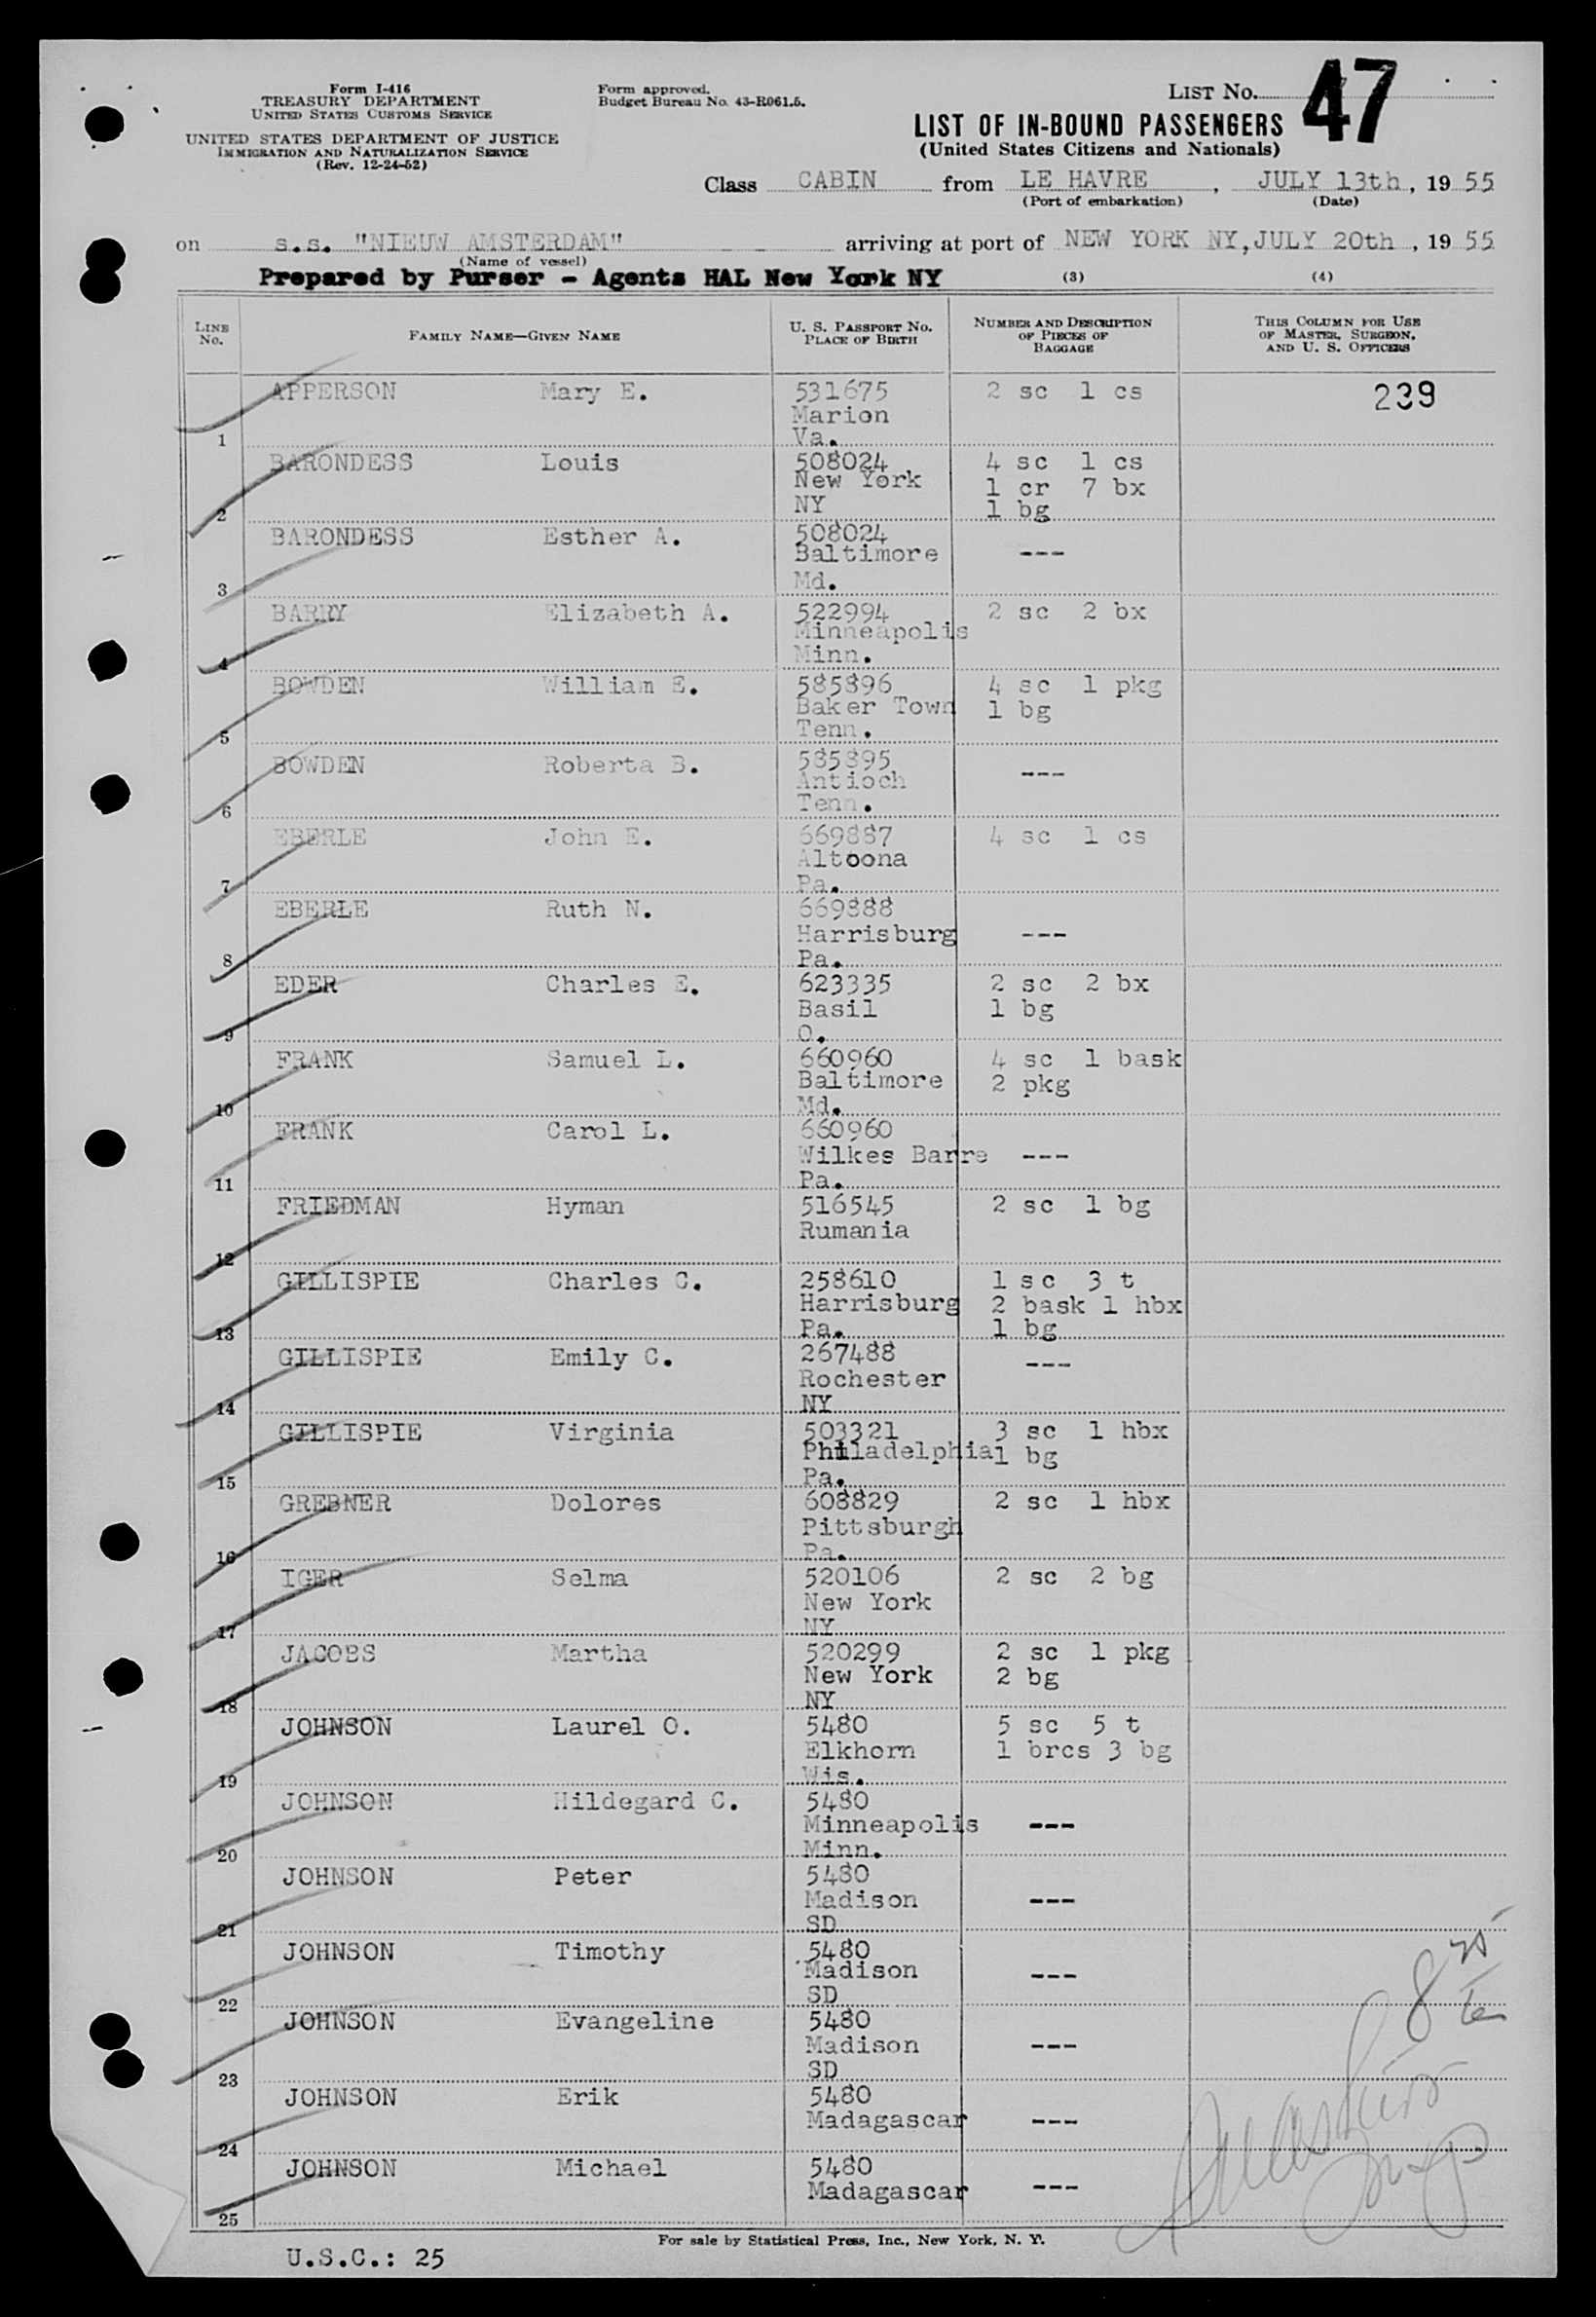 Form I-416
TREASURY DEPARTMENT
UNITED STATES CUSTOMS SERVICE
UNITED STATES DEPARTMENT OF JUSTICE
IMMIGRATION AND NATURALIZATION SERVICE
(Rev. 12-24-52)
Form approved.
Budget Bureau No. 43-R061.5.
LIST No. 47
LIST OF IN-BOUND PASSENGERS
(United States Citizens and Nationals)
Class CABIN from LE HAVRE, JULY 13th, 19 55
(Port of embarkation) (Date)
on s.s. "NIEUW AMSTERDAM" arriving at port of NEW YORK NY, JULY 20th, 19 55
(Name of vessel)
Prepared by Purser - Agents HAL New York NY (3) (4)
LINE No. FAMILY NAME—GIVEN NAME U. S. PASSPORT No. PLACE OF BIRTH NUMBER AND DESCRIPTION OF PIECES OF BAGGAGE THIS COLUMN FOR USE OF MASTER, SURGEON, AND U. S. OFFICERS
APPERSON Mary E. 531675 2 sc 1 cs 239
Marion
1 Va.
BARONDESS Louis 508024 4 sc 1 cs
New York 1 cr 7 bx
2 NY 1 bg
BARONDESS Esther A. 508024
Baltimore ---
3 Md.
BARRY Elizabeth A. 522994 2 sc 2 bx
Minneapolis
4 Minn.
BOWDEN William E. 585896 4 sc 1 pkg
Baker Town 1 bg
5 Tenn.
BOWDEN Roberta B. 585895
Antioch ---
6 Tenn.
EBERLE John E. 669887 4 sc 1 cs
Altoona
7 Pa.
EBERLE Ruth N. 669888
Harrisburg ---
8 Pa.
EDER Charles E. 623335 2 sc 2 bx
Basil 1 bg
9 O.
FRANK Samuel L. 660960 4 sc 1 bask
Baltimore 2 pkg
10 Md.
FRANK Carol L. 660960
Wilkes Barre ---
11 Pa.
FRIEDMAN Hyman 516545 2 sc 1 bg
Rumania
12
GILLISPIE Charles C. 258610 1 sc 3 t
Harrisburg 2 bask 1 hbx
13 Pa. 1 bg
GILLISPIE Emily C. 267488 ---
Rochester
14 NY
GILLISPIE Virginia 503321 3 sc 1 hbx
Philadelphia 1 bg
15 Pa.
GREBNER Dolores 608829 2 sc 1 hbx
Pittsburgh
16 Pa.
IGER Selma 520106 2 sc 2 bg
New York
17 NY
JACOBS Martha 520299 2 sc 1 pkg
New York 2 bg
18 NY
JOHNSON Laurel O. 5480 5 sc 5 t
Elkhorn 1 brcs 3 bg
19 Wis.
JOHNSON Hildegard C. 5480
Minneapolis ---
20 Minn.
JOHNSON Peter 5480
Madison ---
21 SD
JOHNSON Timothy 5480
Madison ---
22 SD
JOHNSON Evangeline 5480
Madison ---
23 SD
JOHNSON Erik 5480
Madagascar ---
24
JOHNSON Michael 5480
Madagascar ---
25
For sale by Statistical Press, Inc., New York, N. Y.
U.S.C.: 25